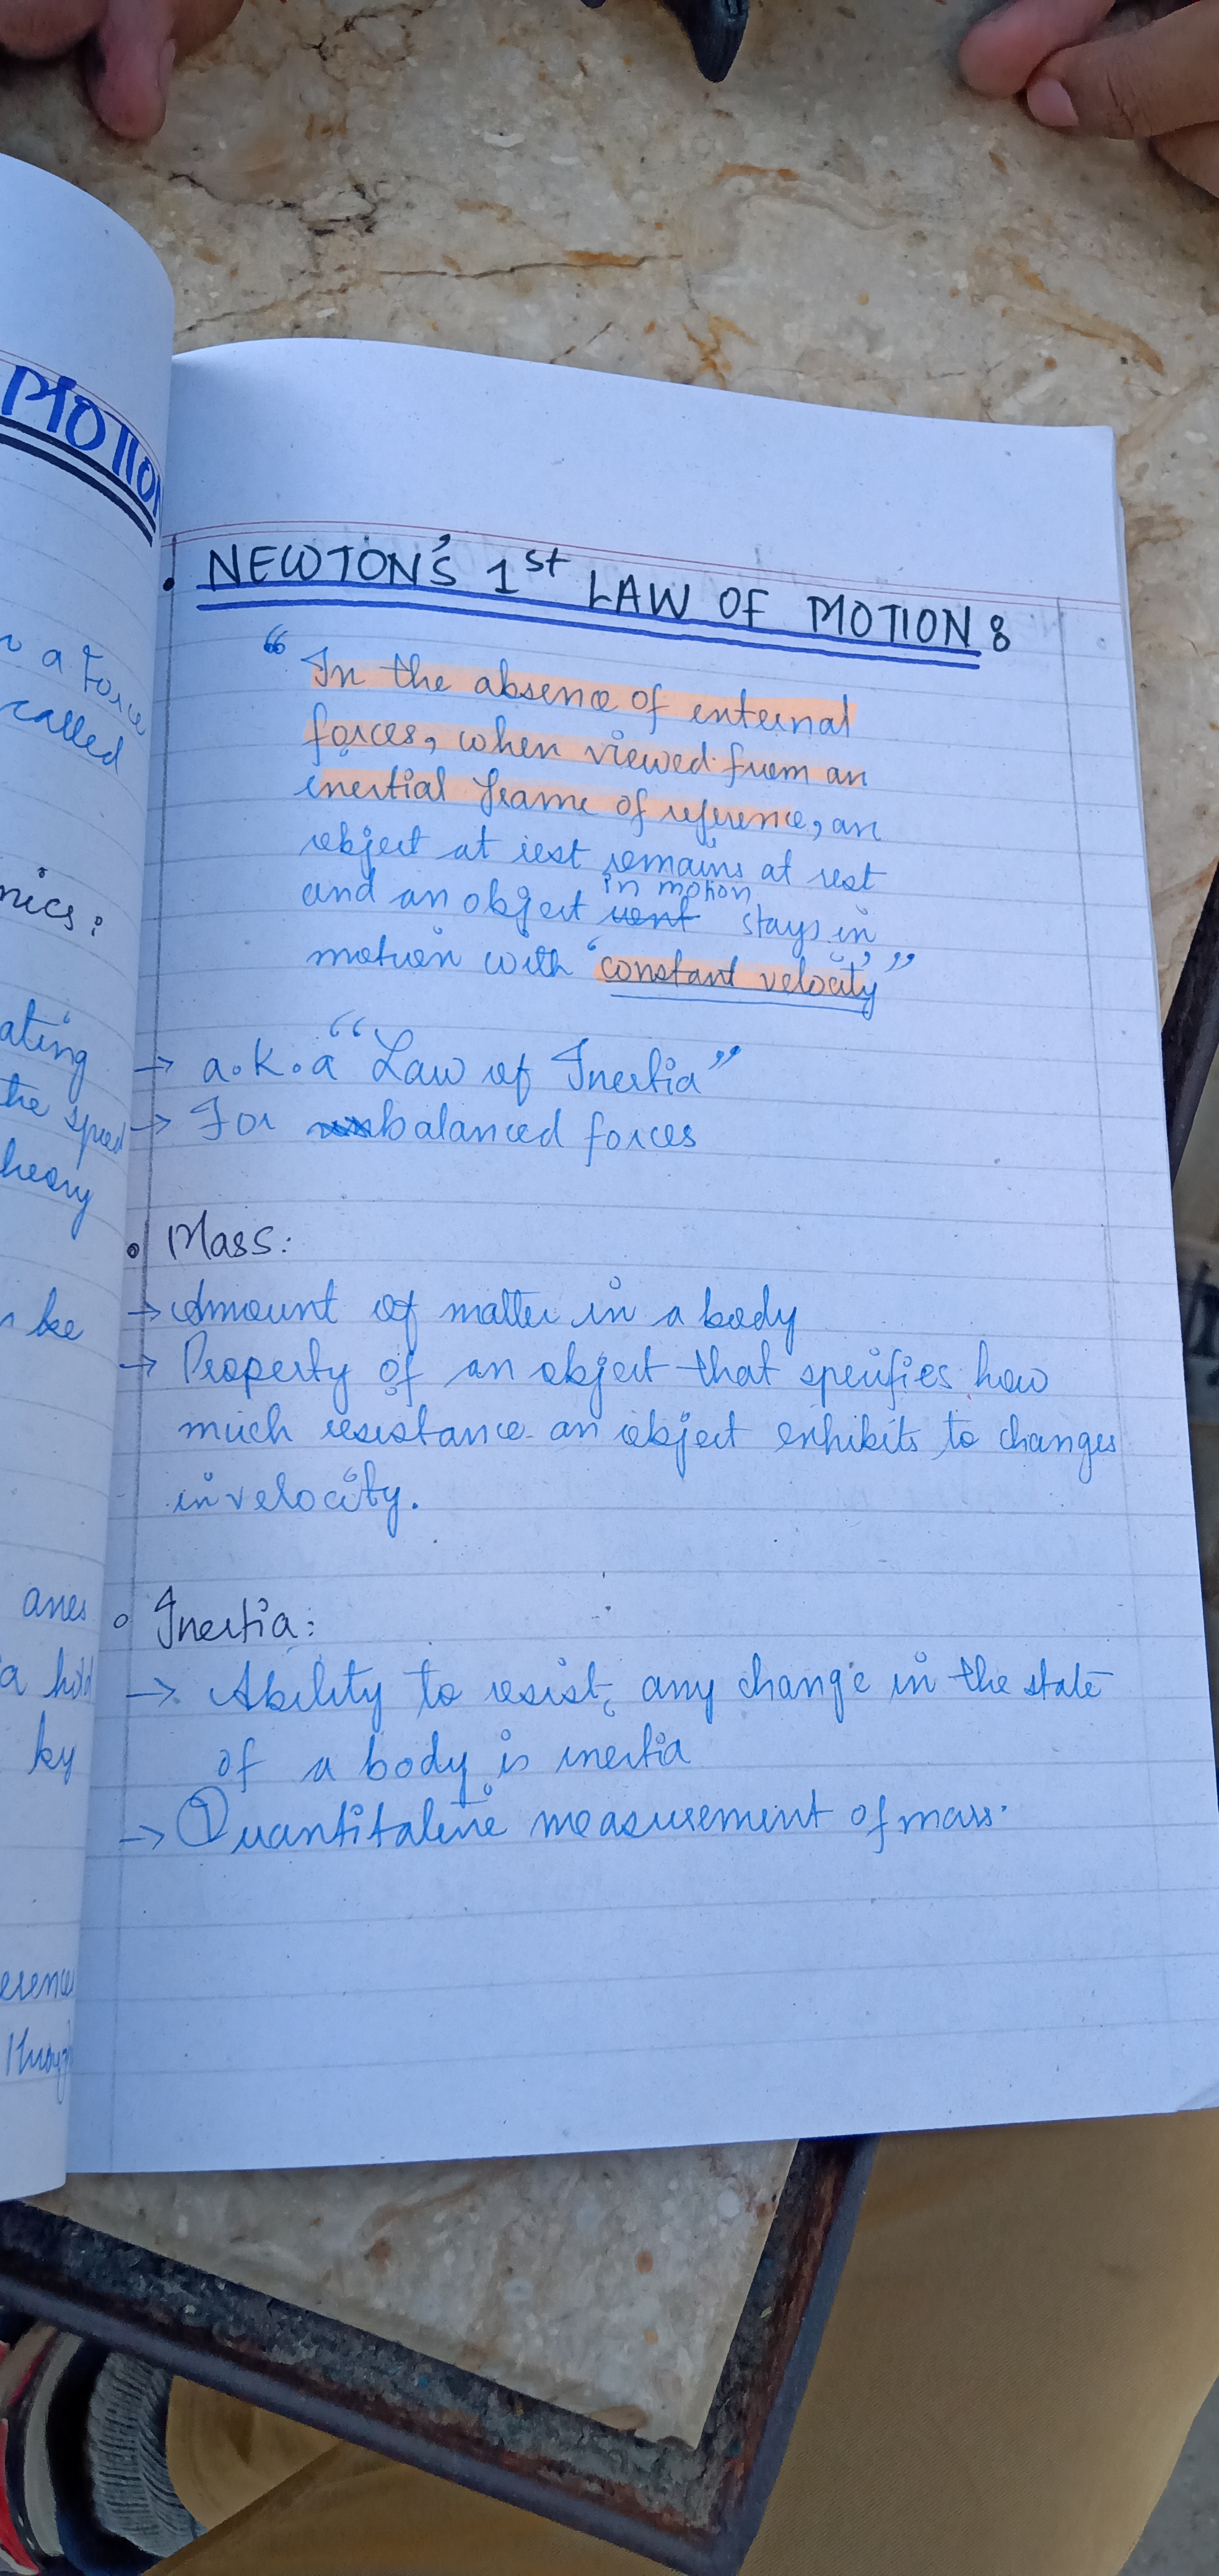 MOTION
a Force
called
nics:
ating
the speed
heory
be
anes
a hold
by
NEWTON'S 1st LAW OF MOTION:
"In the absence of external
forces, when viewed from an
inertial frame of reference, an
object at rest remains at rest
in motion
and an object stays in
motion with 'constant velocity'"
→ a.k.a "Law of Inertia"
→ For balanced forces
• Mass:
→ Amount of matter in a body
→ Property of an object that specifies how
much resistance an object exhibits to changes
in velocity.
• Inertia:
→ Ability to resist any change in the state
of a body is inertia
→ Quantitative measurement of mass.